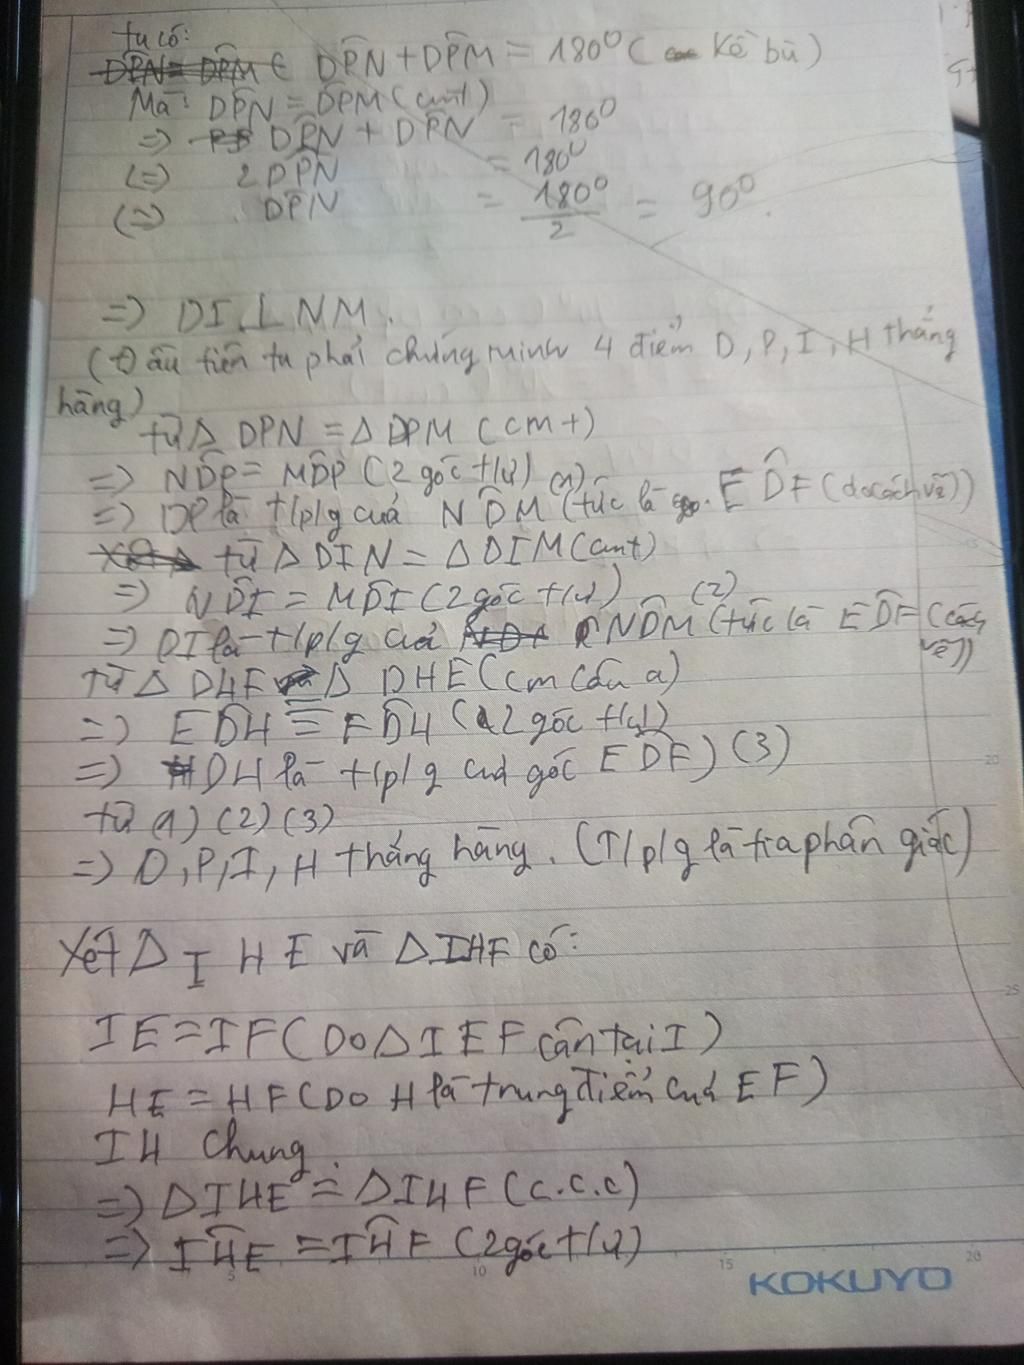 ta có:
DPN = DPM E DPN + DPM = 180° ( kề bù)
Mà: DPN = DPM (cmt)
=> DPN + DPN = 180°
(=) 2DPN = 180°
(=) DPN = 180°/2 = 90°.
=> DI ⊥ NM.
(Đầu tiên ta phải chứng minh 4 điểm D, P, I, H thẳng
hàng)
từ Δ DPN = Δ DPM (cm+)
=> NDP = MDP (2 góc t/ứ) (1)
=> DP là t/p/g của NDM (tức là góc EDF (do cách vẽ))
từ Δ DIN = Δ DIM (cmt)
=> NDI = MDI (2 góc t/ứ) (2)
=> DI là t/p/g của NDM (tức là EDF (cách
vẽ))
từ Δ DHF = Δ DHE (cm câu a)
=> EDH = FDH (2 góc t/ứ)
=> DH là t/p/g của góc EDF) (3)
từ (1) (2) (3)
=> D, P, I, H thẳng hàng. (T/p/g là tia phân giác)
Xét Δ I H E và Δ IHF có:
IE = IF (Do Δ I E F cân tại I)
HE = HF (Do H là trung điểm của EF)
IH chung
=> Δ IHE = Δ IHF (c.c.c)
=> IHE = IHF (2 góc t/ứ)
5 10 15 20
20
25
KOKUYO